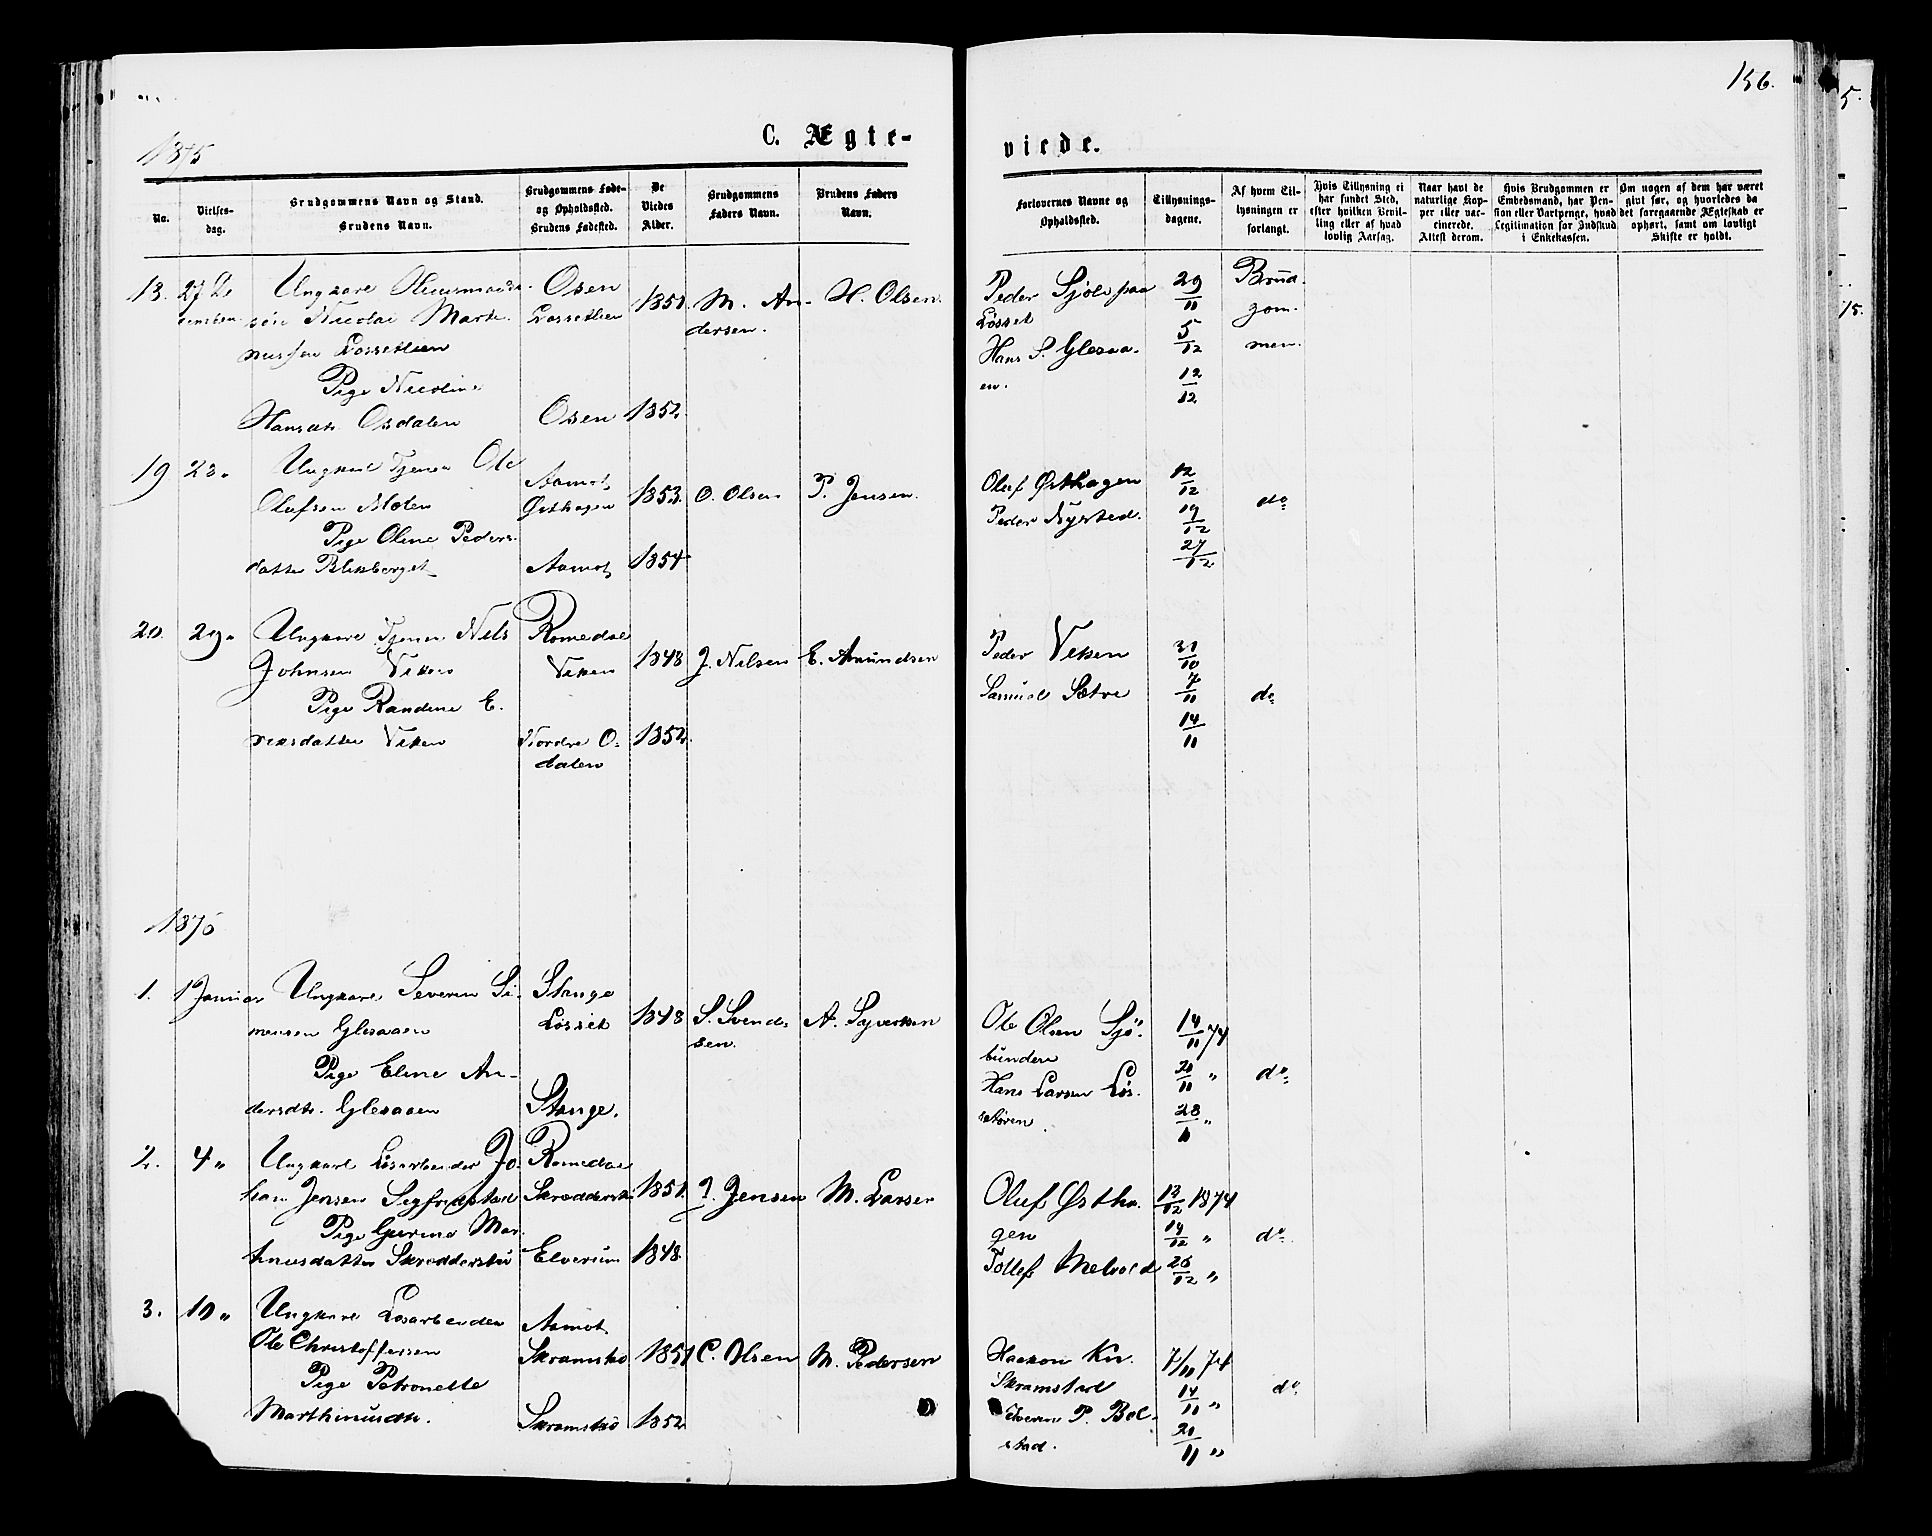 156.
5.
15.
1875
C. Ægte-
viede.
No.
Vielses-
dag.
Brudgommens Navn og Stand.
Brudens Navn.
Brudgommens Føde-
og Opholdssted.
Brudens Fødested.
De
Viedes
Alder.
Brudgommens
Faders Navn.
Brudens Faders
Navn.
Forlovernes Navne og
Opholdssted.
Tillysnings-
dagene.
Af hvem Til-
lysningen er
forlangt.
Hvis Tillysning ei
har fundet Sted,
efter hvilken Bevil-
ling eller af hvad
lovlig Aarsag.
Naar havt de
naturlige Kop-
per eller vac-
cinerede.
Attest derom.
Hvis Brudgommen er
Embedsmand, har Pen-
sion eller Vartpenge, hvad
Legitimation for Indskud
i Enkekassen.
Om nogen af dem har været
gift før, og hvorledes da
det foregaaende Ægteskab er
ophørt, samt om lovligt
Skifte er holdt.
18. 27 De
cember
Ungkarl Huusmands-
søn Nicolai Marti-
nussen Løssetlien
Pige Nicoline
Hansdtr. Osdalen
Osen
Løssetlien
Osen
1851.
1852.
M. An-
dersen.
H. Olsen.
Peder Sjøli paa
Løsset
Hans S. Glesaa-
en.
29/11
5/12
12/12
Brud-
gom-
men.
19 28 "
Ungkarl Tjener Ole
Olafsen Moten
Pige Oline Peders-
datter Blekberget
Aamot
Østhagen
Aamot
1853.
1854
O. Olsen
P. Jensen.
Oluf Østhagen
Peder Nysted.
12/12
19/12
27/12
do
20. 29 "
Ungkarl Tjener Nils
Johnsen Viken
Pige Randine E-
riksdatter Viken
Romedal
Viken
Nordre O-
dalen
1848
1852.
J. Nilsen
E. Amundsen
Peder Viken
Samuel Sætre
31/10
7/11
14/11
do
1875
1. 1 Januar
Ungkarl Severin Si-
mensen Glesaaen
Pige Eline An-
dersdtr. Glesaaen
Stange
Løsset
Stange.
1848
S. Svend-
sen.
A. Syversen
Ole Olsen Sjø-
bunden
Hans Larsen Løs-
setøren.
14/11 74
21/11 "
28/11 "
do
2. 4 "
Ungkarl Løsarbeider Jo-
han Jensen Sigfridstad
Pige Gurine Mar-
tinusdatter Skræddersti
Romedal
Skræddersti
Elverum
1851.
1848.
J. Jensen
M. Larsen
Oluf Østha-
gen
Tollef Melvold
12/12 1874
19/12 "
26/12 "
do
3. 10 "
Ungkarl Løsarbeider
Ole Christoffersen
Pige Petronelle
Marthinusdtr.
Aamot
Skramstad
Skramstad
1851
1852
C. Olsen
M. Pedersen
Haakon Kn.
Skramstad
Iveren P. Bol-
stad.
7/11 74
14/11 "
21/11 "
do